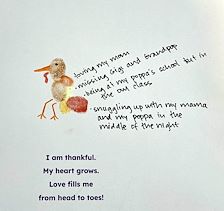 loving my mom
• missing Gigi and Grandpop
• being at my poppa's school but in
the owl class
• snuggling up with my mama
and my poppa in the
middle of the night
I am thankful.
My heart grows.
Love fills me
from head to toes!